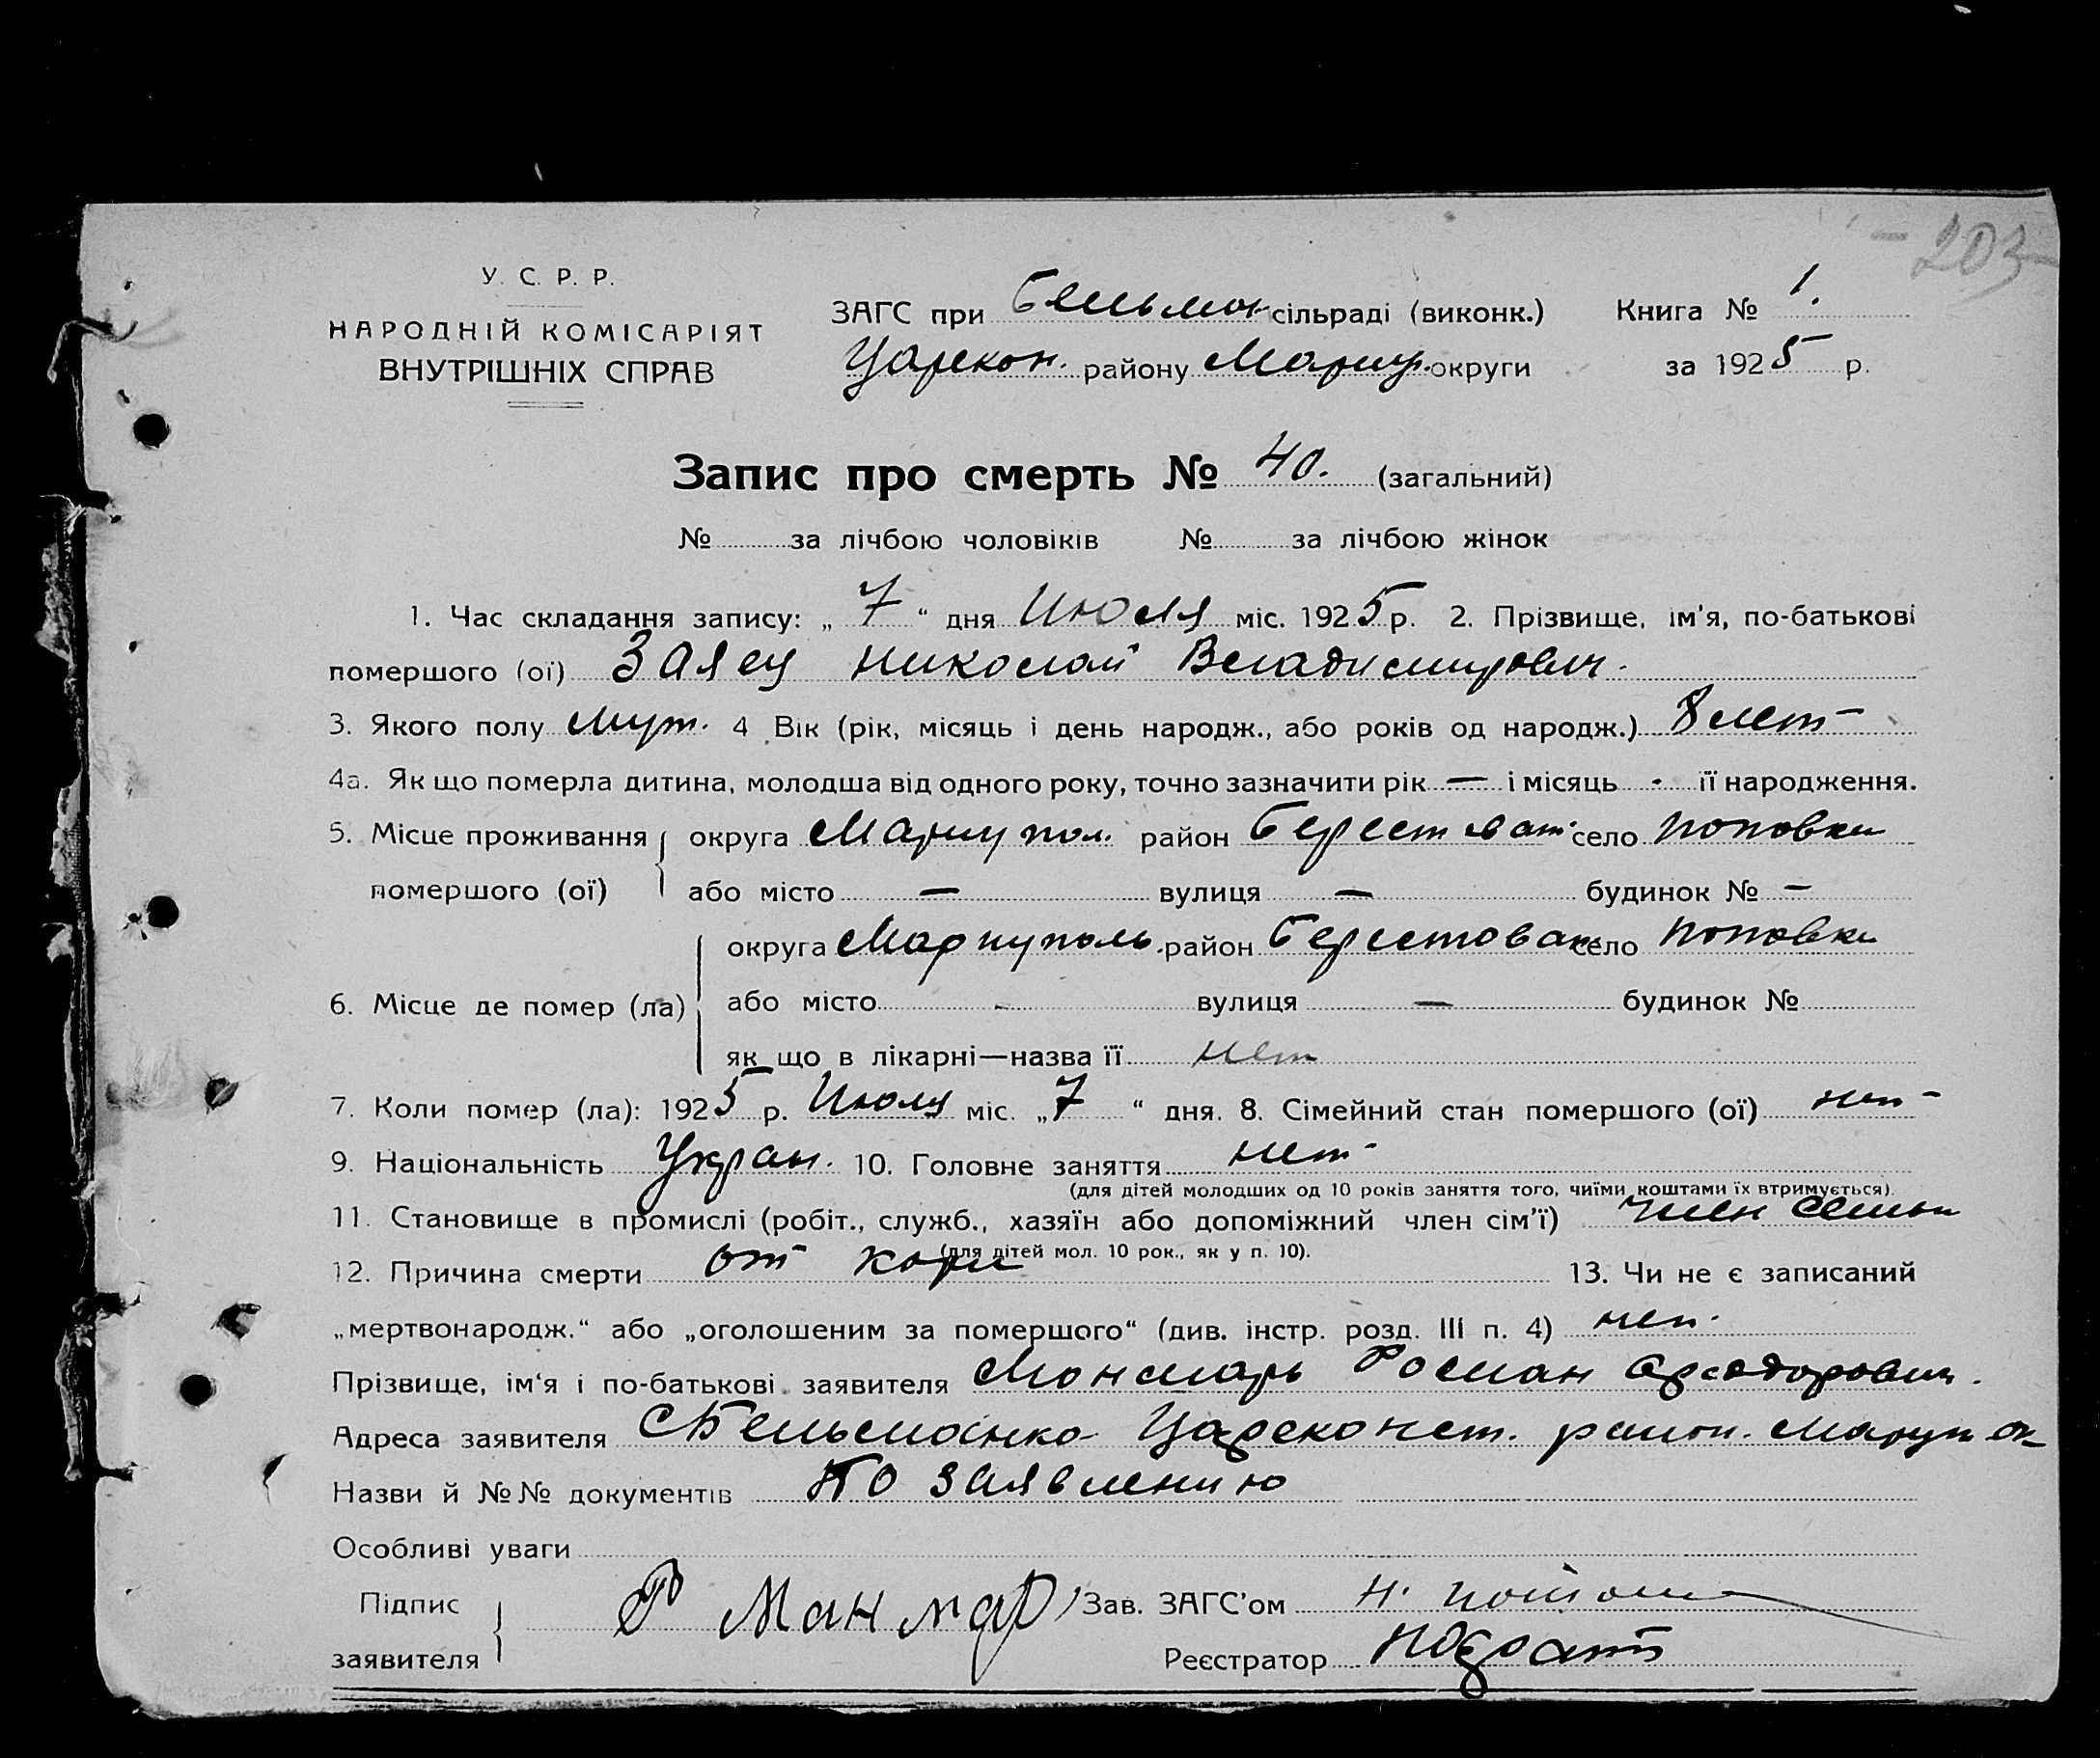 203
У. С. Р. Р.
НАРОДНІЙ КОМІСАРІЯТ
ВНУТРІШНІХ СПРАВ
ЗАГС при Бельман сільраді (виконк.) Книга № 1.
Царекон. району Мариуп. округи за 1925 р.
Запис про смерть № 40. (загальний)
№ за лічбою чоловіків № за лічбою жінок
1. Час складання запису: „ 7 “ дня Июля міс. 1925 р. 2. Прізвище, ім'я, по-батькові
помершого (ої) Заяец Николай Владимирович.
3. Якого полу муж. 4 Вік (рік, місяць і день народж., або років од народж.) 8 лет —
4а. Як що померла дитина, молодша від одного року, точно зазначити рік — і місяць - її народження.
5. Місце проживання округа Мариупол. район Берестоват. село Поповки
помершого (ої) або місто — вулиця — будинок № —
округа Мариуполь. район Берестован село Поповки
6. Місце де помер (ла) або місто - вулиця — будинок №
як що в лікарні—назва її нет
7. Коли помер (ла): 1925 р. Июля міс. „7 “ дня. 8. Сімейний стан помершого (ої) нет -
9. Національність Укран. 10. Головне заняття нет -
(для дітей молодших од 10 років заняття того, чиїми коштами їх втримується).
11. Становище в промислі (робіт., служб., хазяїн або допоміжний член сім'ї) член семьи
(для дітей мол. 10 рок., як у п. 10).
12. Причина смерти от кори 13. Чи не є записаний
„мертвонародж.“ або „оголошеним за помершого“ (див. інстр. розд. III п. 4) нет.
Прізвище, ім'я і по-батькові заявителя Монмарь Роман
Адреса заявителя С Бельманка Цареконст. район. Мариуп ок
Назви й №№ документів По заявлению
Особливі уваги
Підпис Р Манмар Зав. ЗАГС'ом Н.
заявителя Реєстратор